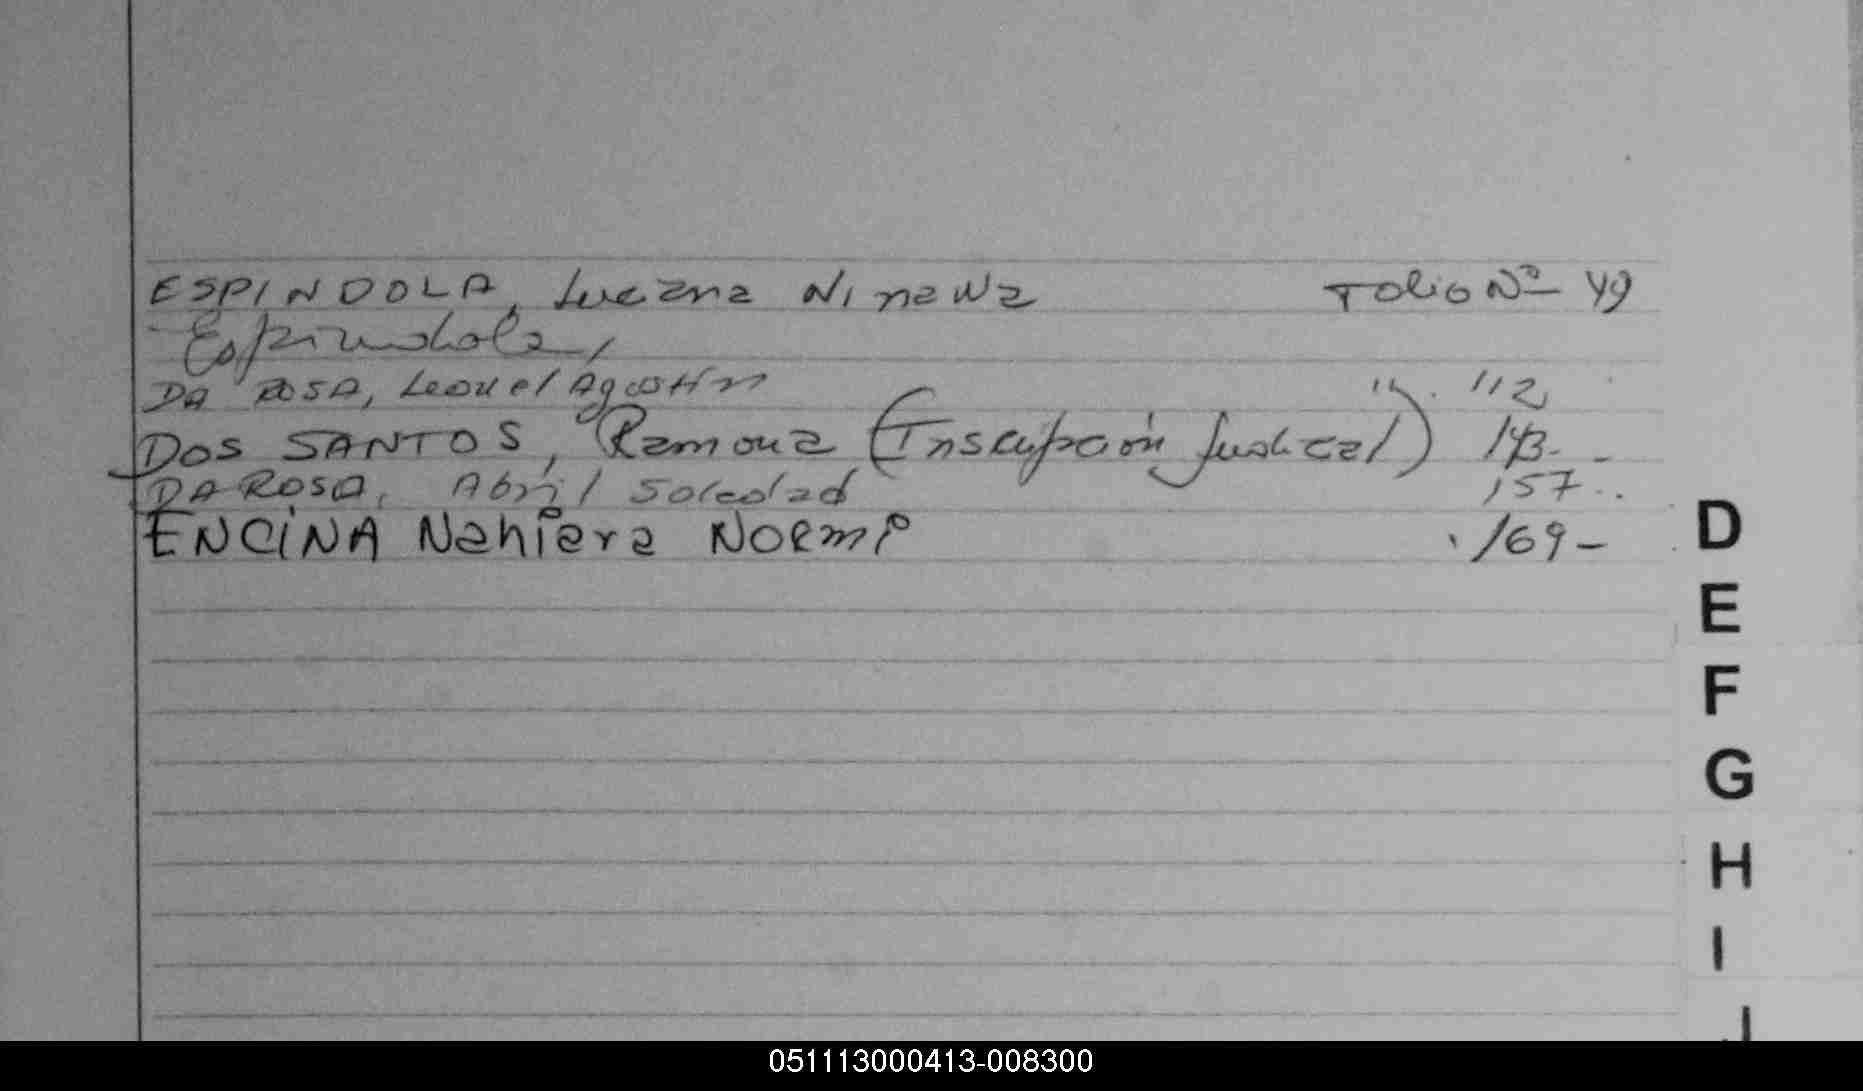 ESPINDOLA, Luciana Ninawa Folio Nº 49
Espindola,
DA ROSA, Leonel Agostin " . 112
DOS SANTOS, Ramona (Inscripción Judicial) 143-
DA ROSA, Abril Soledad 157..
ENCINA Nahiara Noemi 169-
D
E
F
G
H
I
J
051113000413-008300